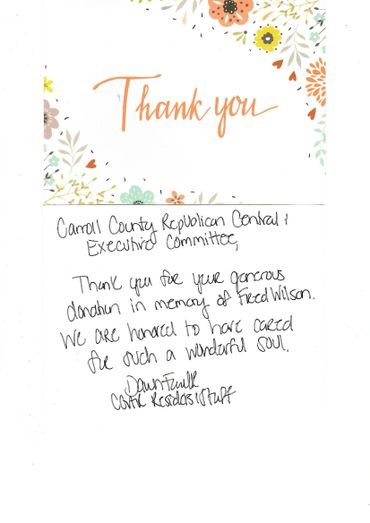 Thank you
Carroll County Republican Central &
Executive Committee,
Thank you for your generous
donation in memory of Fred Wilson.
We are honored to have cared
for such a wonderful soul.
Dawn Faulk
Residents & Staff